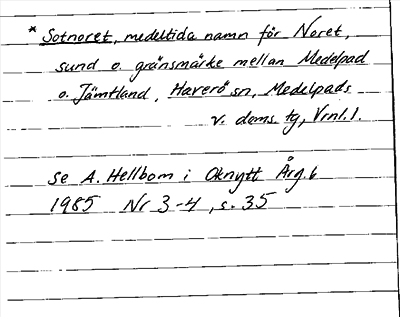 * Sotnoret, medeltida namn för Noret,
sund o. gränsmärke mellan Medelpad
o. Jämtland, Haverö sn, Medelpads
v. doms. tg, Vnl. l.
se A. Hellbom i Oknytt Årg. 6
1985 Nr 3-4, s. 35